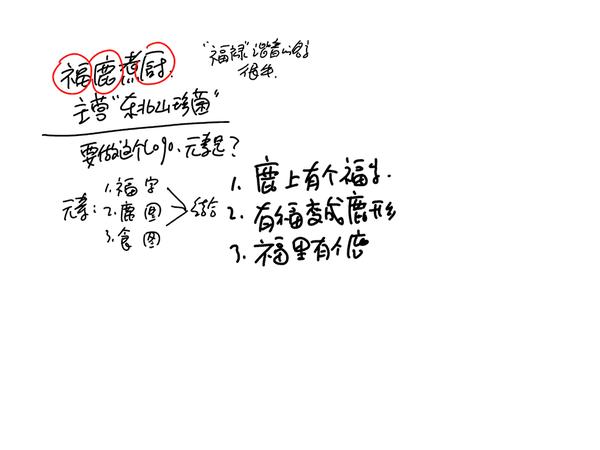 福鹿煮厨.
"福禄"谐音
很多.
主营"东北山珍菌"
要做这个logo.元素是?
元素:
1.福 字
2.鹿 图
3.食 图
结合
1. 鹿上有个福字.
2. 有福变成鹿形
3. 福里有个鹿